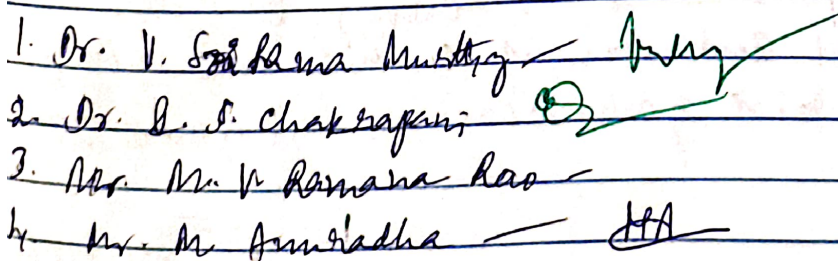 1. Dr. V. Sri Rama Murthy —
2. Dr. D. S. Chakrapani
3. Mr. M. V Ramana Rao —
4. Mr. M Anuradha — MA